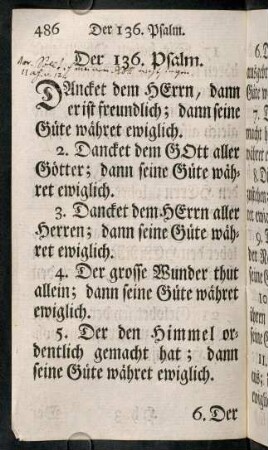 486 Der 136. Psalm.
Der 136. Psalm.
DAncket dem HErrn, dann
er ist freundlich; dann seine
Güte währet ewiglich.
2. Dancket dem GOtt aller
Götter; dann seine Güte wäh-
ret ewiglich.
3. Dancket dem HErrn aller
Herren; dann seine Güte wäh-
ret ewiglich.
4. Der grosse Wunder thut
allein; dann seine Güte währet
ewiglich.
5. Der den Himmel or-
dentlich gemacht hat; dann
seine Güte währet ewiglich.
6. Der